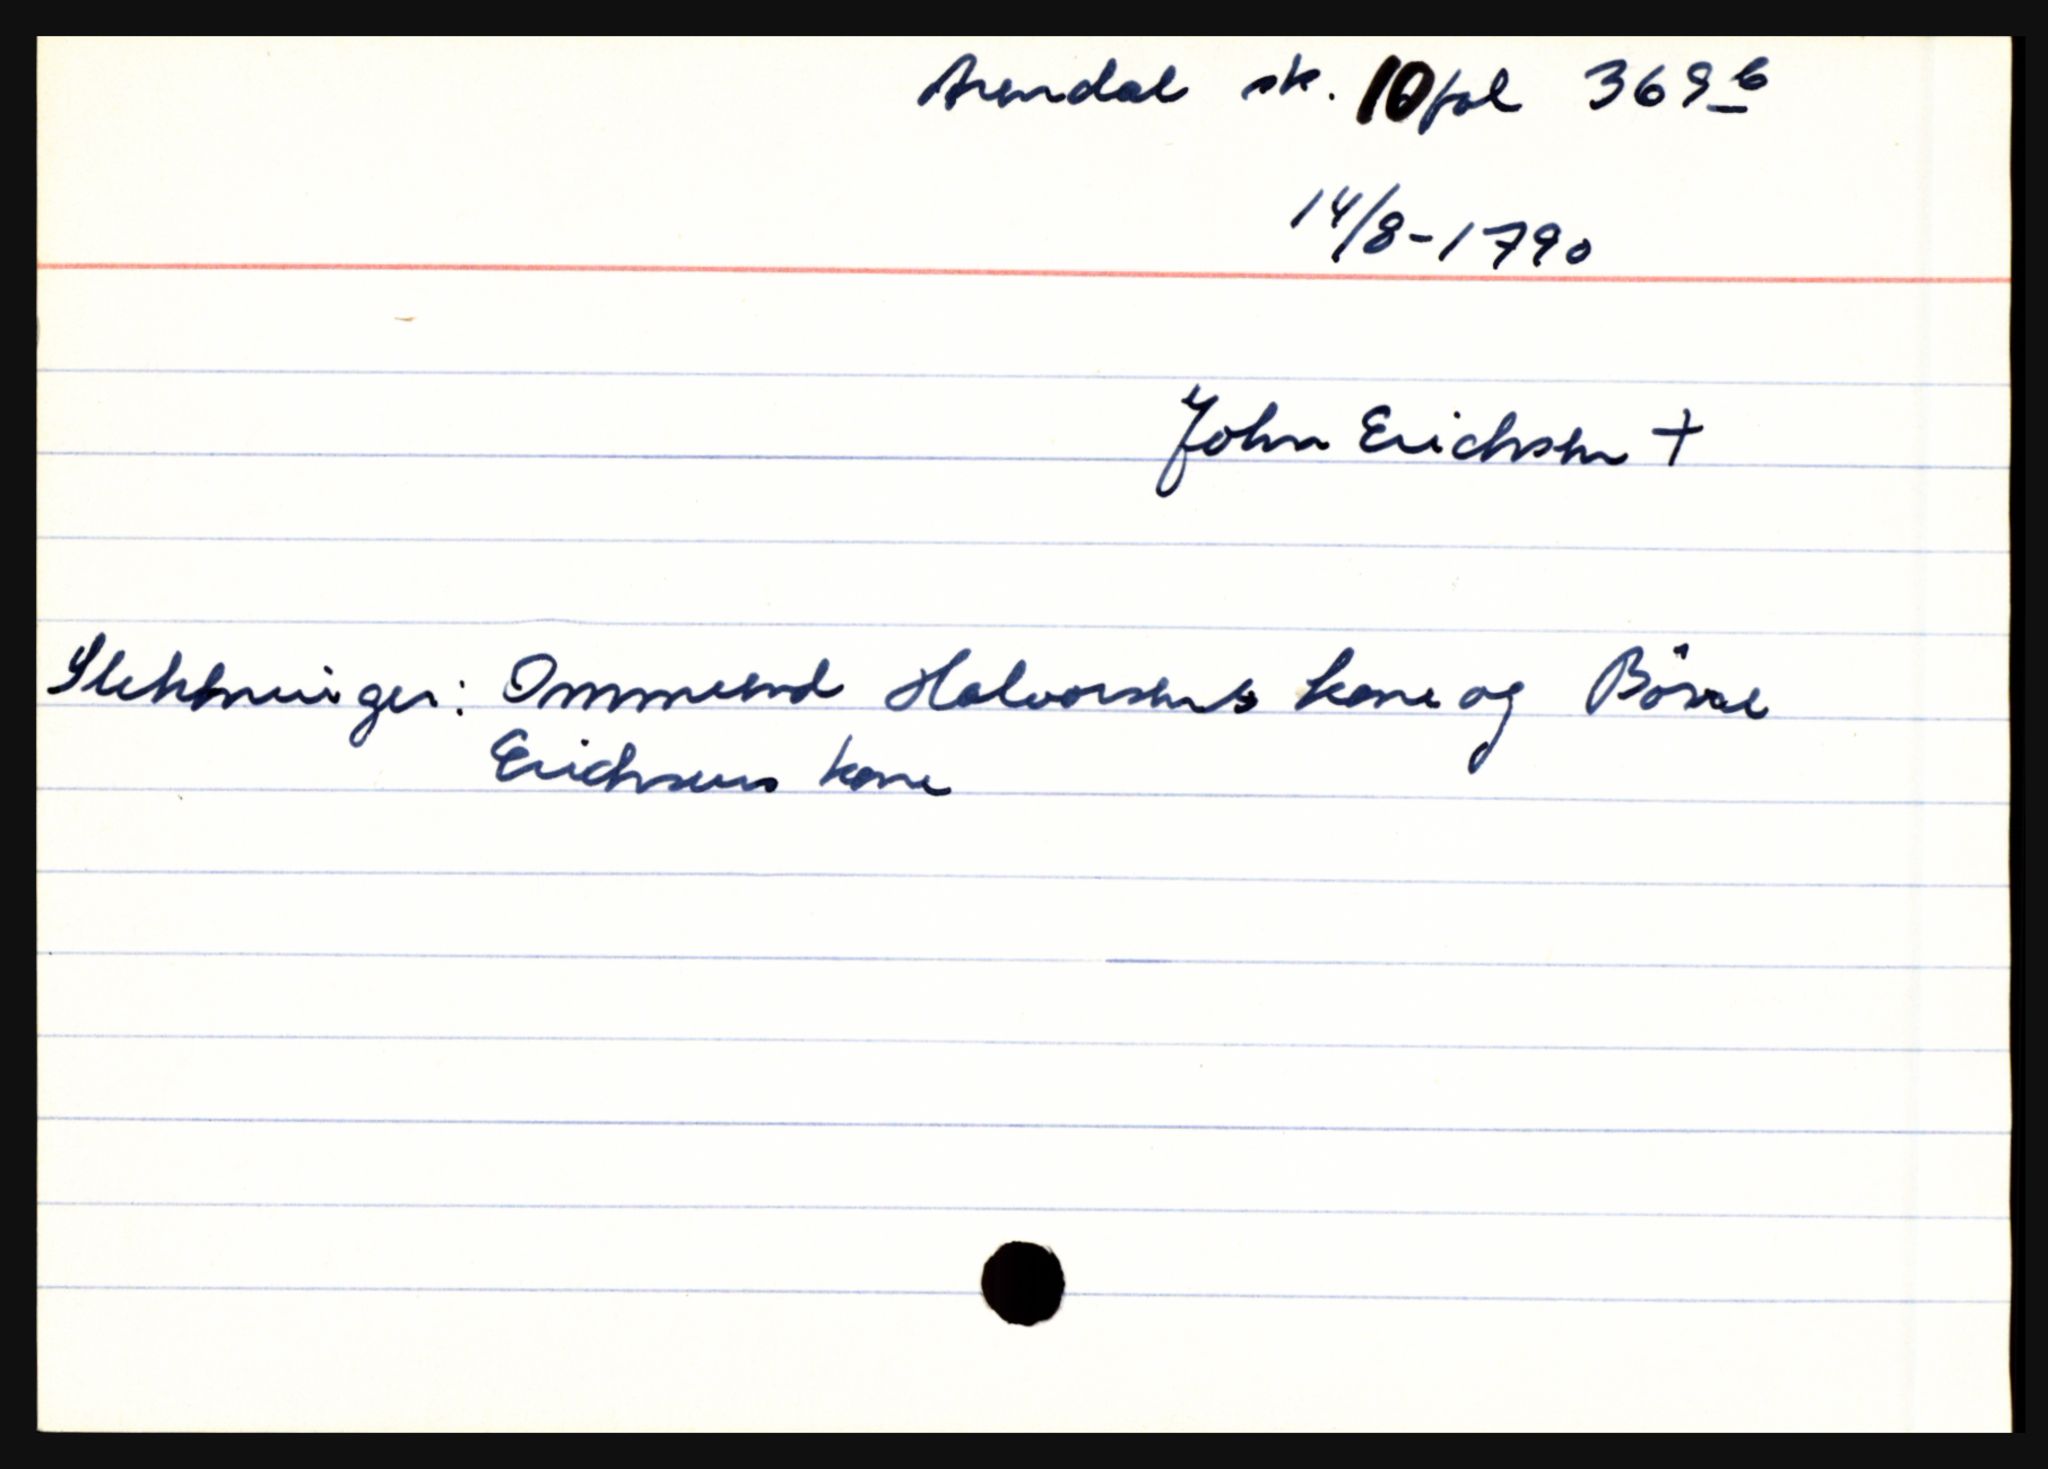 Arendal sk. 10 fol 369 b
14/8-1790
John Erichsen +
Slektninger: Ommund Halvorsens kone og Börre
Erichsens kone